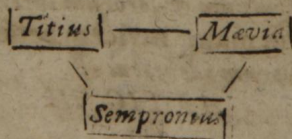 Titius Mævia
Sempronius